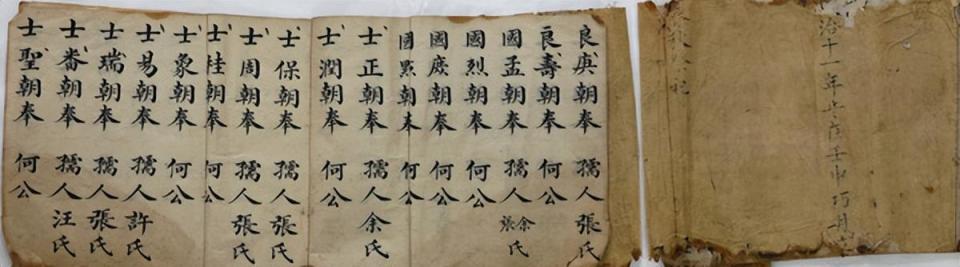 治十一年歲在壬申巧月
良庚朝奉 孺人張氏
良壽朝奉 何公
國孟朝奉 孺人余張氏
國烈朝奉 何公
國慶朝奉 何公
國點朝奉 何公
士正朝奉 孺人余氏
士潤朝奉 何公
士保朝奉 孺人張氏
士周朝奉 孺人張氏
士桂朝奉 何公
士象朝奉 何公
士易朝奉 孺人許氏
士瑞朝奉 孺人張氏
士番朝奉 孺人汪氏
士聖朝奉 何公